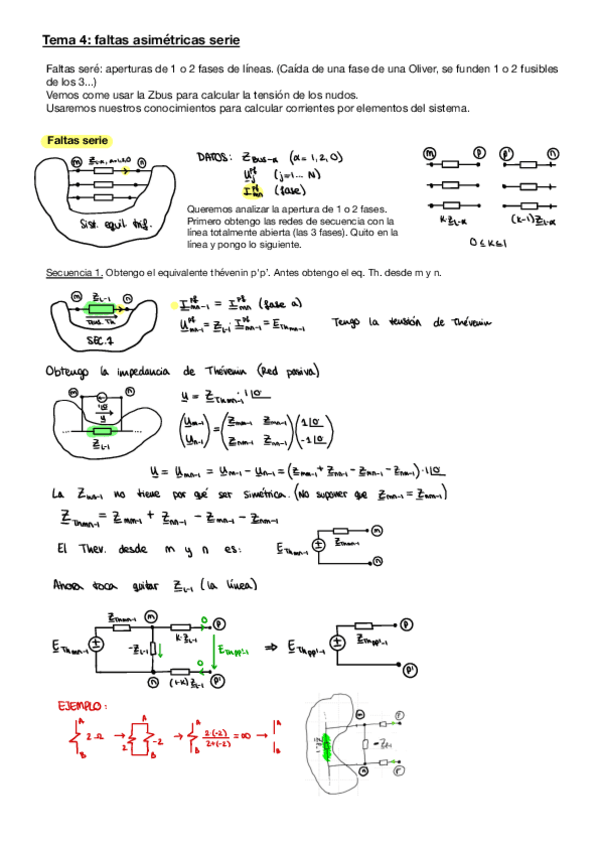 Tema 4: faltas asimétricas serie
Faltas seré: aperturas de 1 o 2 fases de líneas. (Caída de una fase de una Oliver, se funden 1 o 2 fusibles
de los 3...)
Vemos come usar la Zbus para calcular la tensión de los nudos.
Usaremos nuestros conocimientos para calcular corrientes por elementos del sistema.
Faltas serie
m Z_L-α, α=1,2,0 n
Sist. equil. trif.
DATOS: Z_BUS-α (α=1,2,0)
U_j^pf (j=1... N)
I_mn^pf (fase)
m p p' n
k·Z_L-α (k-1)Z_L-α
0≤k≤1
Queremos analizar la apertura de 1 o 2 fases.
Primero obtengo las redes de secuencia con la
línea totalmente abierta (las 3 fases). Quito en la
línea y pongo lo siguiente.
Secuencia 1. Obtengo el equivalente thévenin p'p'. Antes obtengo el eq. Th. desde m y n.
m Z_L-1 n
Tens. Th
SEC. 1
I_mn-1^pf = I_mn^pf (fase a)
U_mn-1^pf = Z_L-1 · I_mn-1^pf = E_Thmn-1 Tengo la tensión de Thévenin
Obtengo la impedancia de Thévenin (Red pasiva)
m 1|0 n
u
Z_L-1
u = Z_Thmn-1 · 1|0
(U_m-1 U_n-1) = (Z_mm-1 Z_mn-1 Z_nm-1 Z_nn-1)(1|0 -1|0)
u = U_mn-1 = U_m-1 - U_n-1 = (Z_mm-1 + Z_nn-1 - Z_mn-1 - Z_nm-1)·1|0
La Z_bus-1 no tiene por qué ser simétrica. (No suponer que Z_mn-1 = Z_nm-1)
Z_Thmn-1 = Z_mm-1 + Z_nn-1 - Z_mn-1 - Z_nm-1
El Thev. desde m y n es: E_Thmn-1 Z_Thmn-1 m n
Ahora toca quitar Z_L-1 (la línea)
Z_Thmn-1 m 0 p
E_Thmn-1 -Z_L-1 k·Z_L-1 E_Thpp'-1 ⇒ E_Thpp'-1 Z_Thpp'-1 p p'
n (1-k)Z_L-1 0 p'
EJEMPLO:
A 2Ω B → A 2 -2 B → A 2·(-2)/2+(-2) = ∞ B → A B
m n Z_L-1 -Z_L-1 p p'